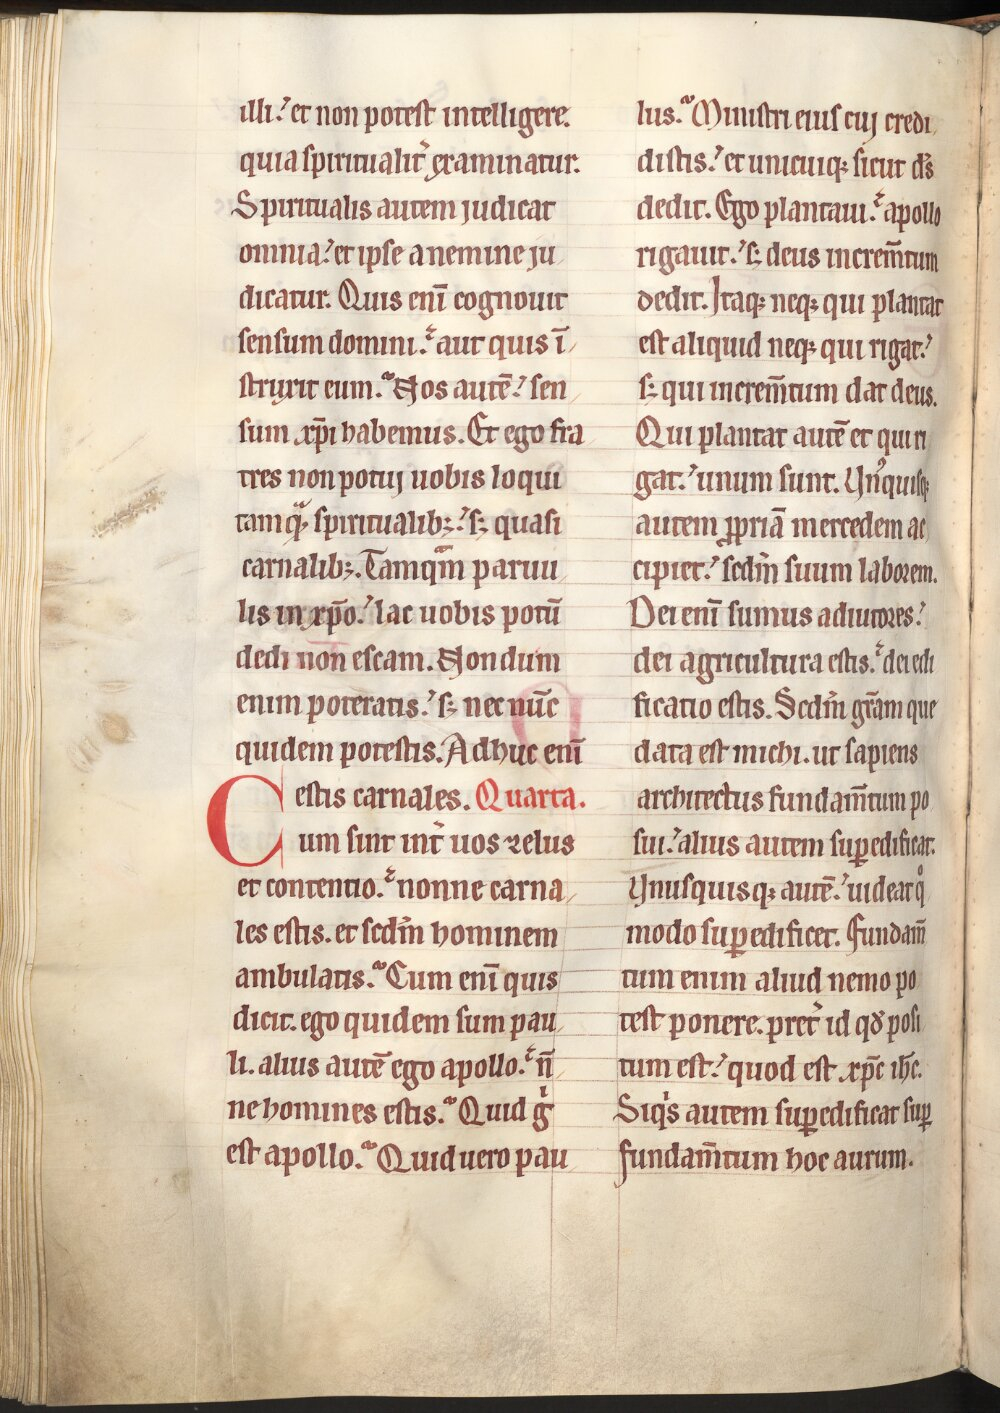 illi.ʼ et non potest intelligere.
quia spiritualit᷑ examinatur.
Spiritualis autem judicat
omnia.ʼ et ipse a nemine ju
dicatur. Quis enī cognouit
sensum domini.ʼ aut quis ī
struxit eum. Nos autē.ʼ sen
sum xp̄i habemus. Et ego fra
tres non potuj uobis loqui
tamqᷓ spiritualib;.ʼ s; quasi
carnalib;. Tamqᷓm paruu
lis in xp̄o.ʼ lac uobis potū
dedi non escam. Nondum
enim poteratis.ʼ s; nec nūc
quidem potestis. Adhuc enī
estis carnales. Quarta.
Cum sint int᷑ uos zelus
et contentio.ʼ nonne carna
les estis. et scdm̄ hominem
ambulatis. Cum enī quis
dicit. ego quidem sum pau
li. alius autē ego apollo.ʼ n̄
ne homines estis. Quid gͥ
est apollo. Quid uero pau
lus. Ministri eius cuj credi
distis.ʼ et unicuiq; sicut dn̄s
dedit. Ego plantaui.ʼ apollo
rigauit.ʼ s; deus increm̄tum
dedit. Itaq; neq; qui plantat
est aliquid neq; qui rigat.ʼ
s; qui increm̄tum dat deus.
Qui plantat autē et qui ri
gat.ʼ unum sunt. Vn᷒quisq;
autem ꝓpriā mercedem ac
cipiet.ʼ scdm̄ suum laborem.
Dei enī sumus adiutores.ʼ
dei agricultura estis.ʼ dei edi
ficatio estis. Scdm̄ gr̄am que
data est michi. ut sapiens
architectus fundam̄tum po
sui.ʼ alius autem suꝑedificat.
Vnusquisq; autē.ʼ uideat qͦ
modo suꝑedificet. Fundam̄
tum enim aliud nemo po
test ponere. pret᷑ id qđ posi
tum est.ʼ quod est xp̄c ih̄c.
Siqͥs autem suꝑedificat suꝑ
fundam̄tum hoc aurum.